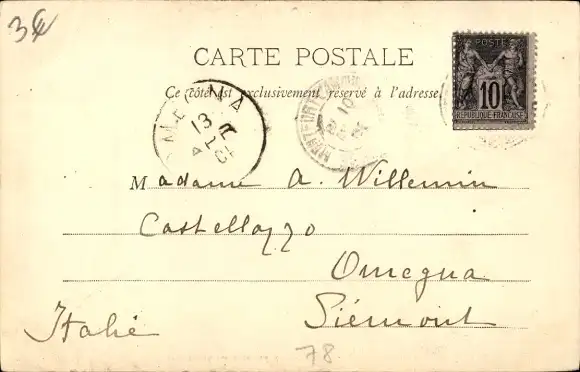 3€
CARTE POSTALE
Ce côté est exclusivement réservé à l'adresse.
POSTE
10
REPUBLIQUE FRANÇAISE
13
10
Madame A. Willemin
Castellazzo
Omegna
Piémont
Italie
78